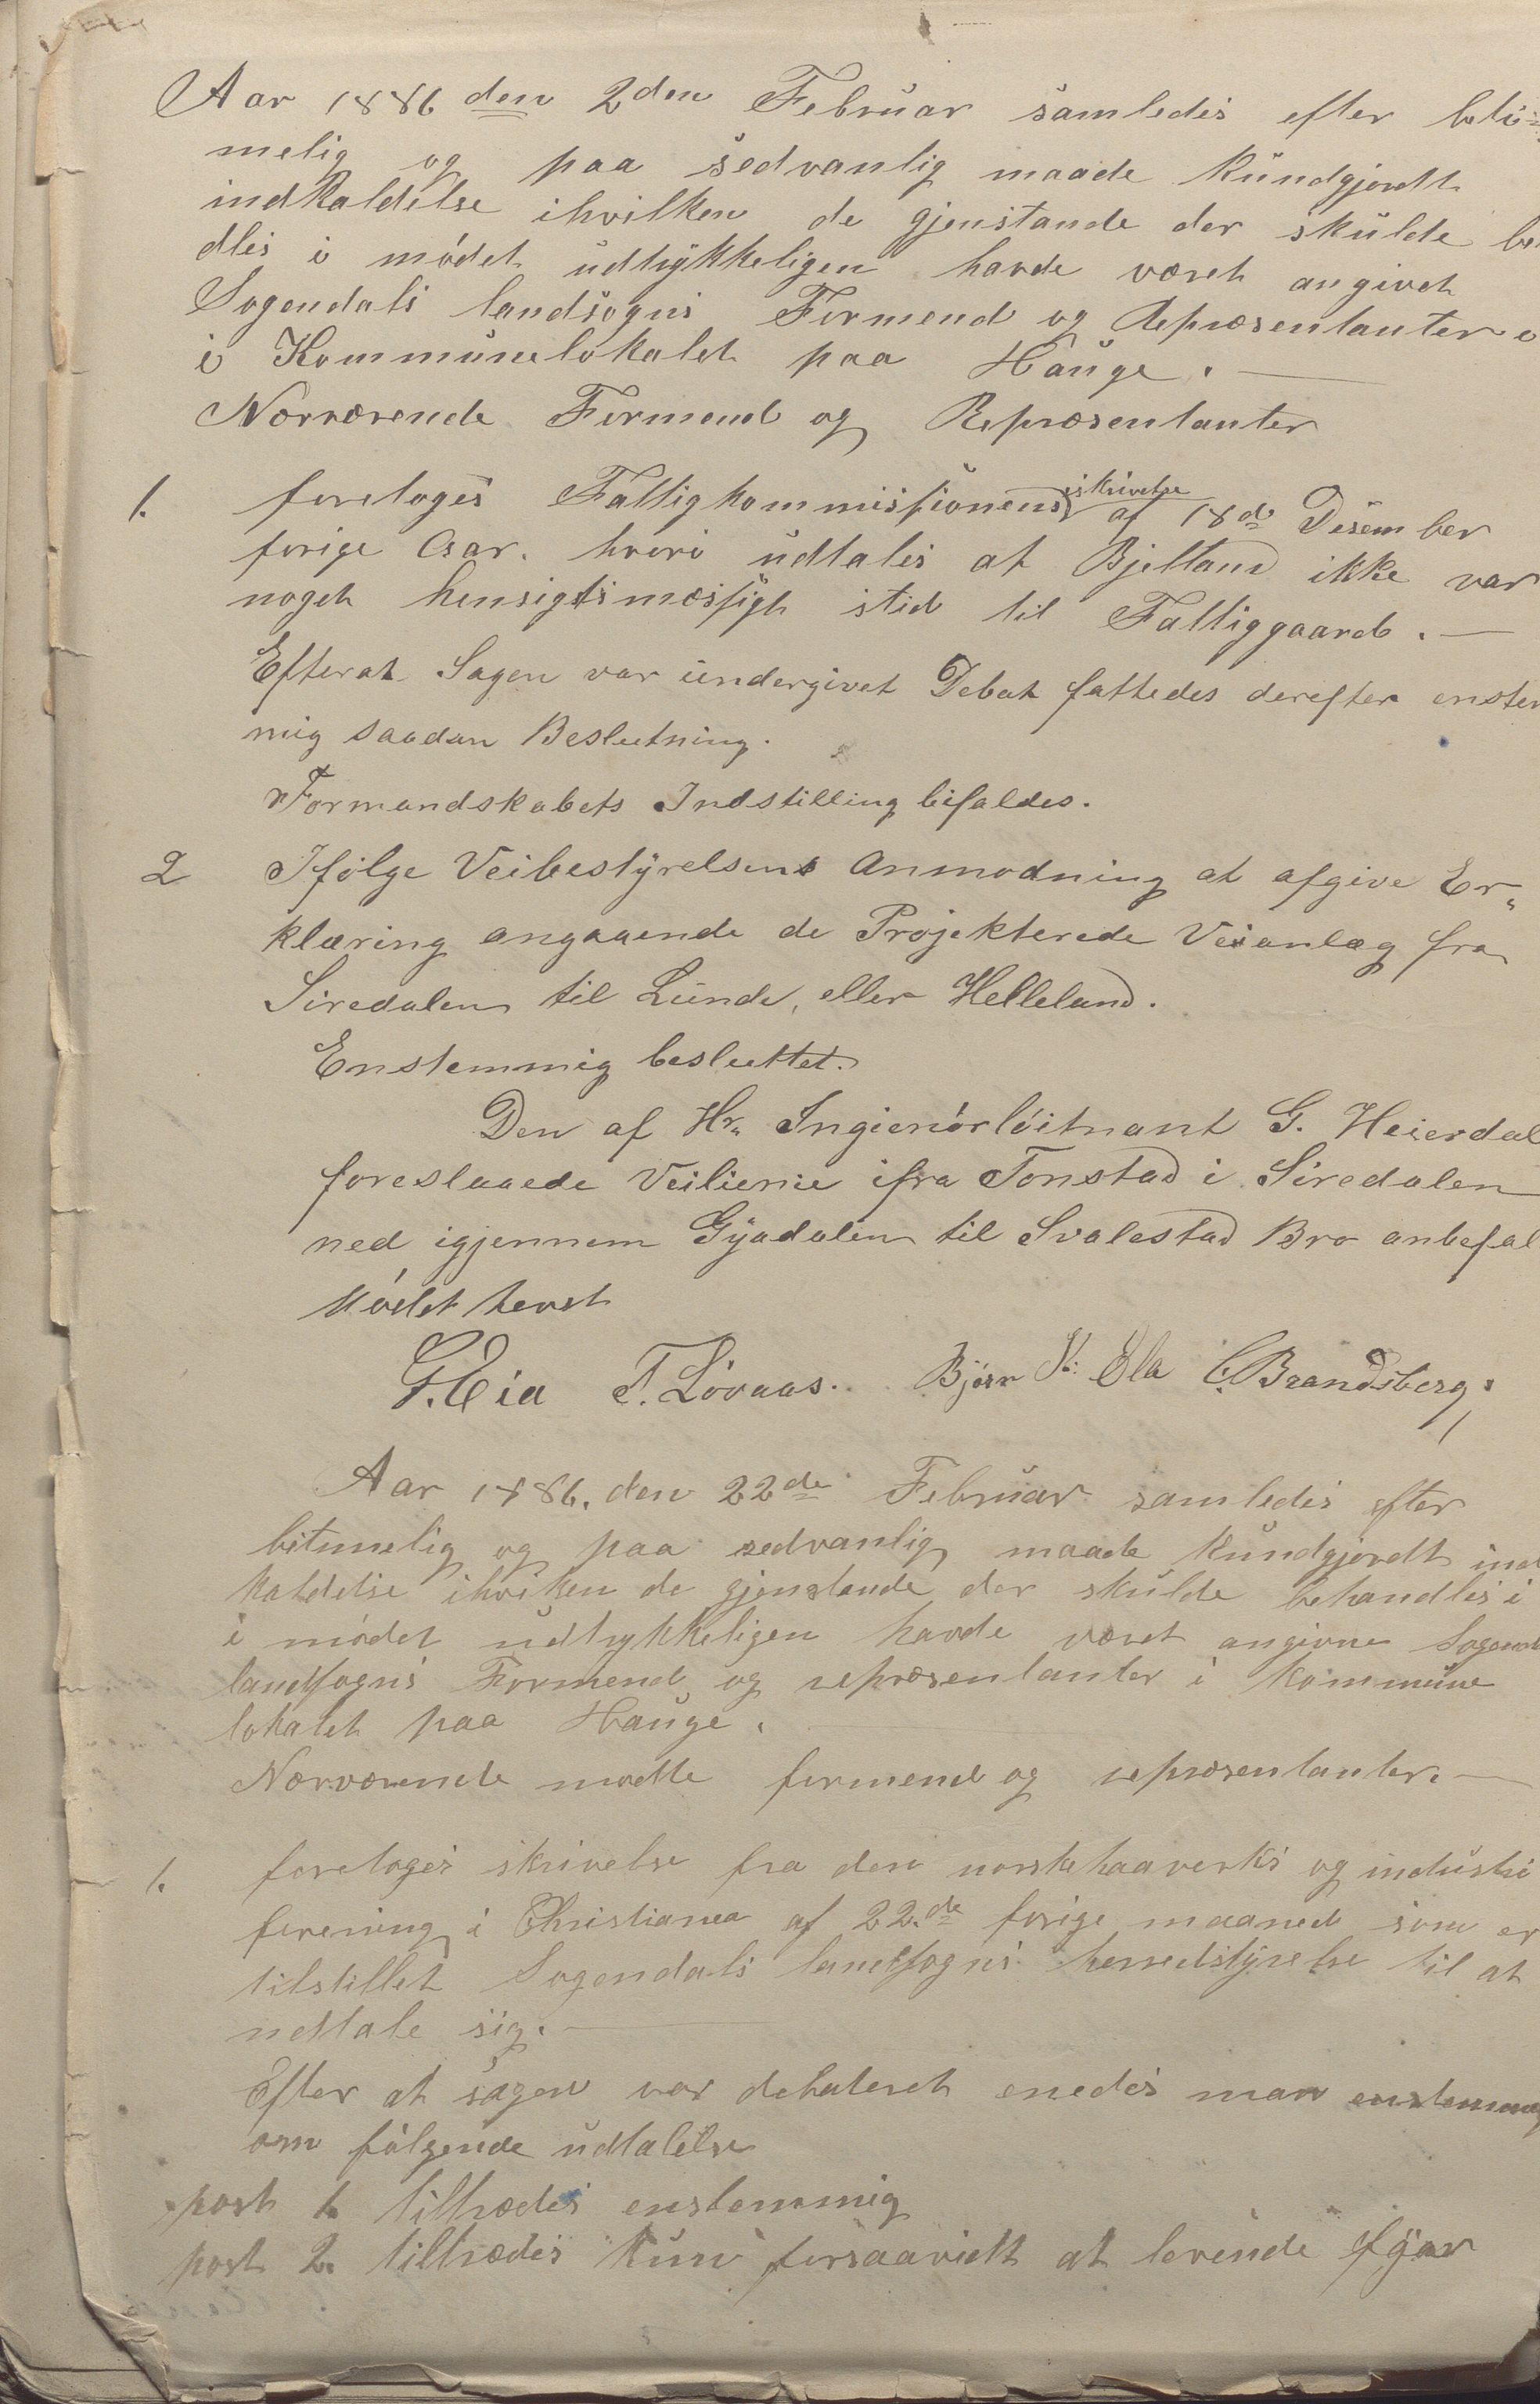 Aar 1886 den 2den Februar samledes efter beti-
melig og paa sedvanlig maade kundgjordt
indkaldelse ihvilken de gjenstande der skulde be
dles i mødet udtrykkeligen havde været angivet
Sogendals landsogns Formend og Repræsentanter
i Kommunelokalet paa Hauge. —
Nærværende Formend og Repræsentanter
1. foretoges Fattigkommissionens skrivelse af 18de Desember
forige Aar. hvori udtales at Bjelland ikke var
noget hensigtsmæssigt sted til Fattiggaard. —
Efterat Sagen var undergivet Debat fattedes derefter enstem
mig saadan Beslutning.
Formandskabets Indstilling bifaldes.
2 Ifølge Veibestyrelsens Anmodning at afgive Er„
klæring angaaende de Projekterede Veianlæg fra
Siredalen til Lunde, eller Helleland.
Enstemmig besluttet.
Den af Hr„ Ingieniørløitnant G. Heierdal
foreslaaede Veilienie ifra Tonstad i Siredalen
ned igjennem Gyadalen til Svalestad Bro anbefal
Mødet hævet
G. Eia T. Løvaas. Bjørn K. Øla C. Brandsberg.
Aar 1886. den 22de Februar samledes efter
betimelig og paa sedvanlig maade kundgjordt ind
kaldelse ihvilken de gjenstande der skulde behandles i
i mødet udtrykkeligen havde været angivne Sogend
landsogns Formend og repræsentanter i Kommune
lokalet paa Hauge.
Nærværende mødte formend og repræsentanter. —
1. foretoges skrivelse fra den norske haaverks og industri
forening i Christiania af 22.de forige maaned som er
tilstillet Sogendals landsogns herredstyrelse til at
udtale sig. —
Efter at sagen var debateret enedes man enstemmig
om følgende udtalelse
post 1. tiltrædes enstemmig
post 2. tiltrædes kun forsaavidt at levende